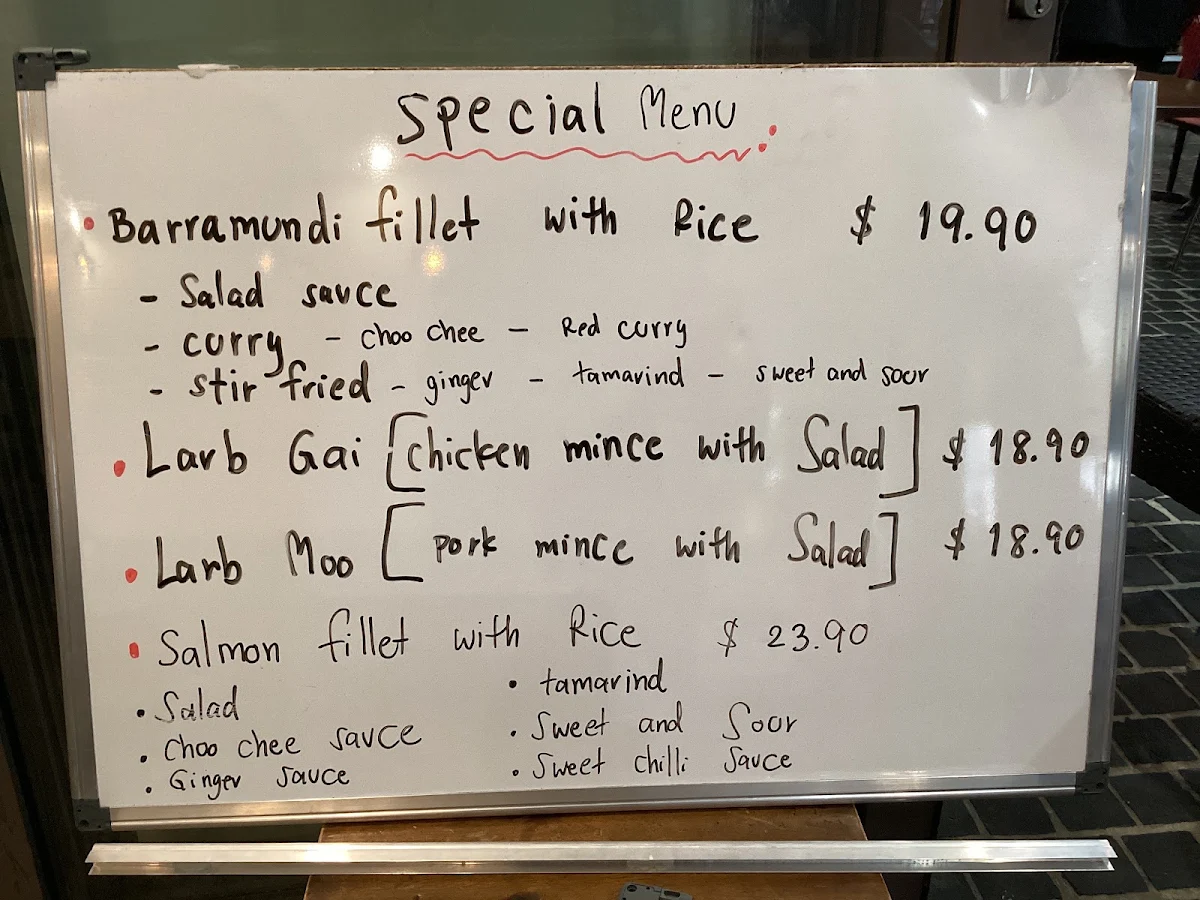 Special Menu
• Barramundi fillet with Rice $ 19.90
- Salad sauce
- curry - choo chee - Red curry
- stir fried - ginger - tamarind - sweet and sour
• Larb Gai [chicken mince with Salad] $ 18.90
• Larb Moo [pork mince with Salad] $ 18.90
• Salmon fillet with Rice $ 23.90
• Salad
• Choo chee sauce
• Ginger sauce
• tamarind
• Sweet and Sour
• Sweet chilli sauce